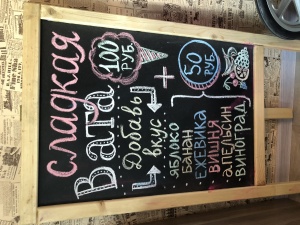 Сладкая
Вата
100
РУБ.
+
50
РУБ.
Добавь
вкус
яблоко
банан
ежевика
вишня
апельсин
виноград